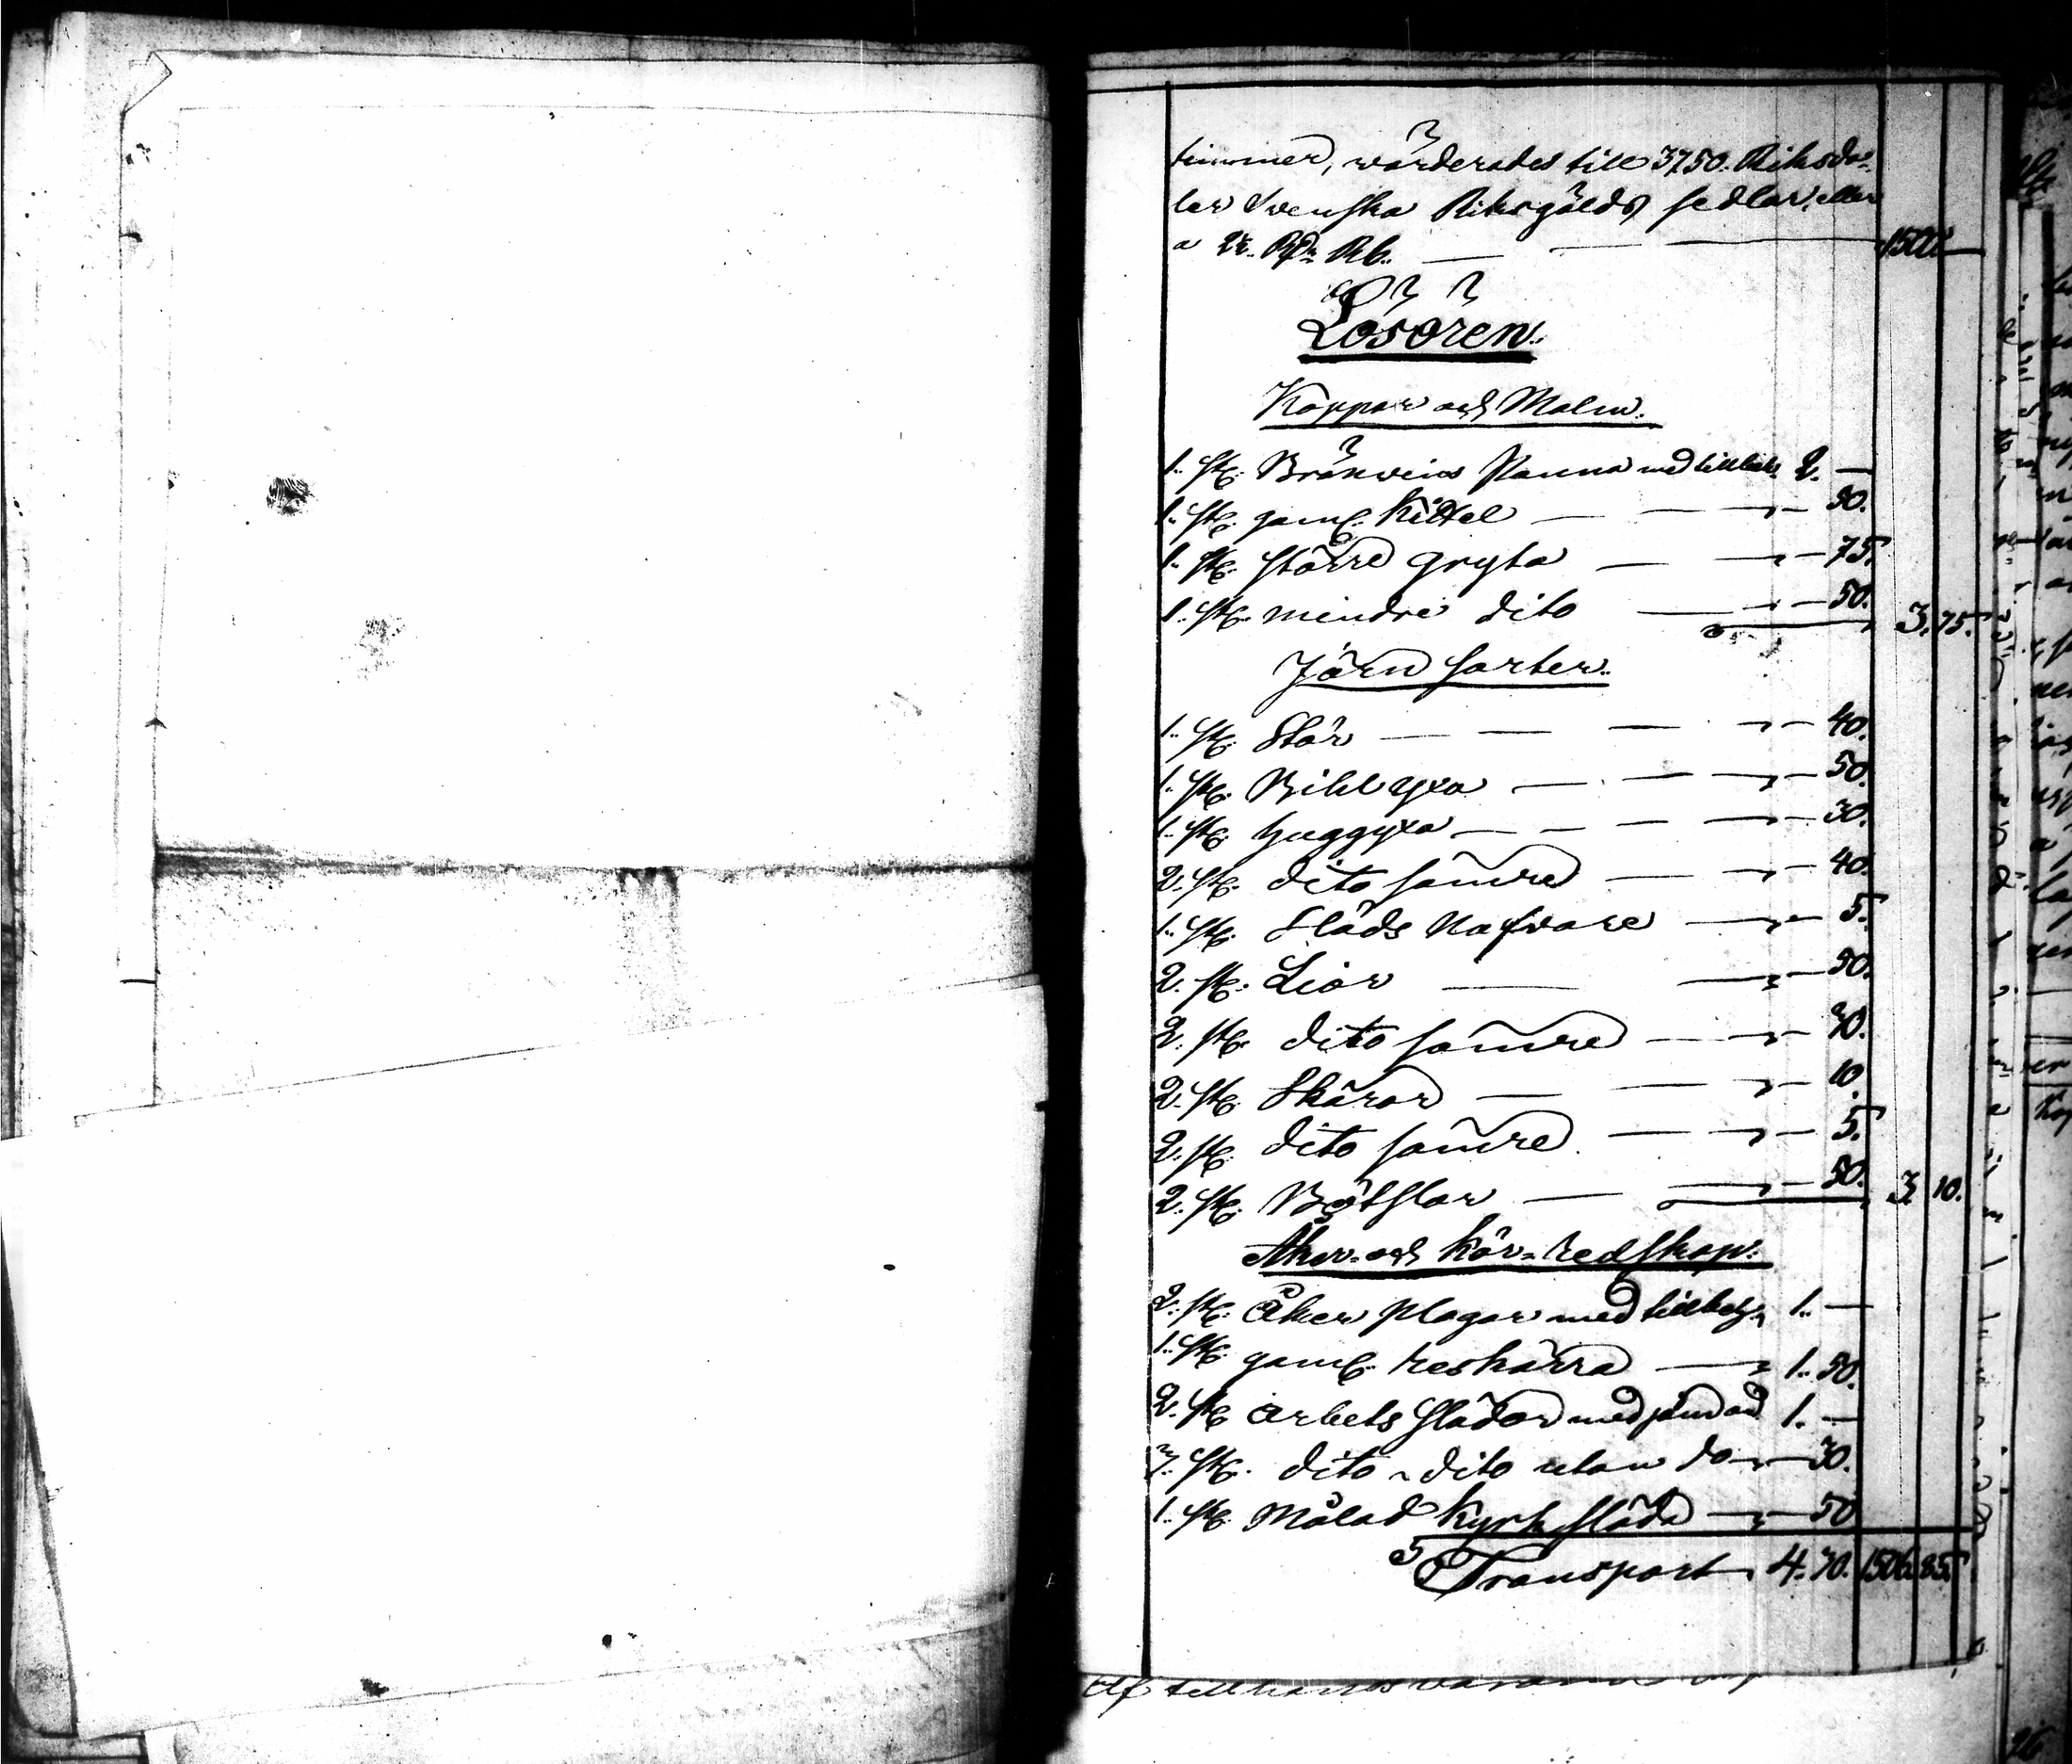 timmer, wärderades till 3750. Riksda-
ler Svenska Riksgälds sedlar, eller
a 2½. Rd. Rb. — 1500. —
Lösören.
Koppar och Malm.
1. st. Bränweins Panna med tillbeh. 2. —
1. st. gaml. Kittel — „ — 50.
1. st. större gryta — „ — 75.
1. st. mindre dito — „ — 50. 3. 75.
Järn sorter.
1. st. Stör — „ — 40.
1. st. Bihl yxa — „ — 50.
1. st. huggyxa — „ — 30.
2. st. dito sämre — „ — 40.
1. st. Släds Nafvare — „ — 5.
2. st. Liar — „ — 50.
2. st. dito sämre — „ — 30.
2. st. Skäror — „ — 10.
2. st. dito sämre — „ — 5.
2. st. Betslar — „ — 50. 3. 10.
Åker- och Kör-redskap.
2. st. åker Plogar med tillbeh. 1. —
1. st. gaml. reskärra — 1. 50.
2. st. arbets slädar med 1. —
3. st. dito dito utan do „ — 30.
1. st. Målad kyrk släda — „ — 50
Transport 4. 30. 1506. 85.